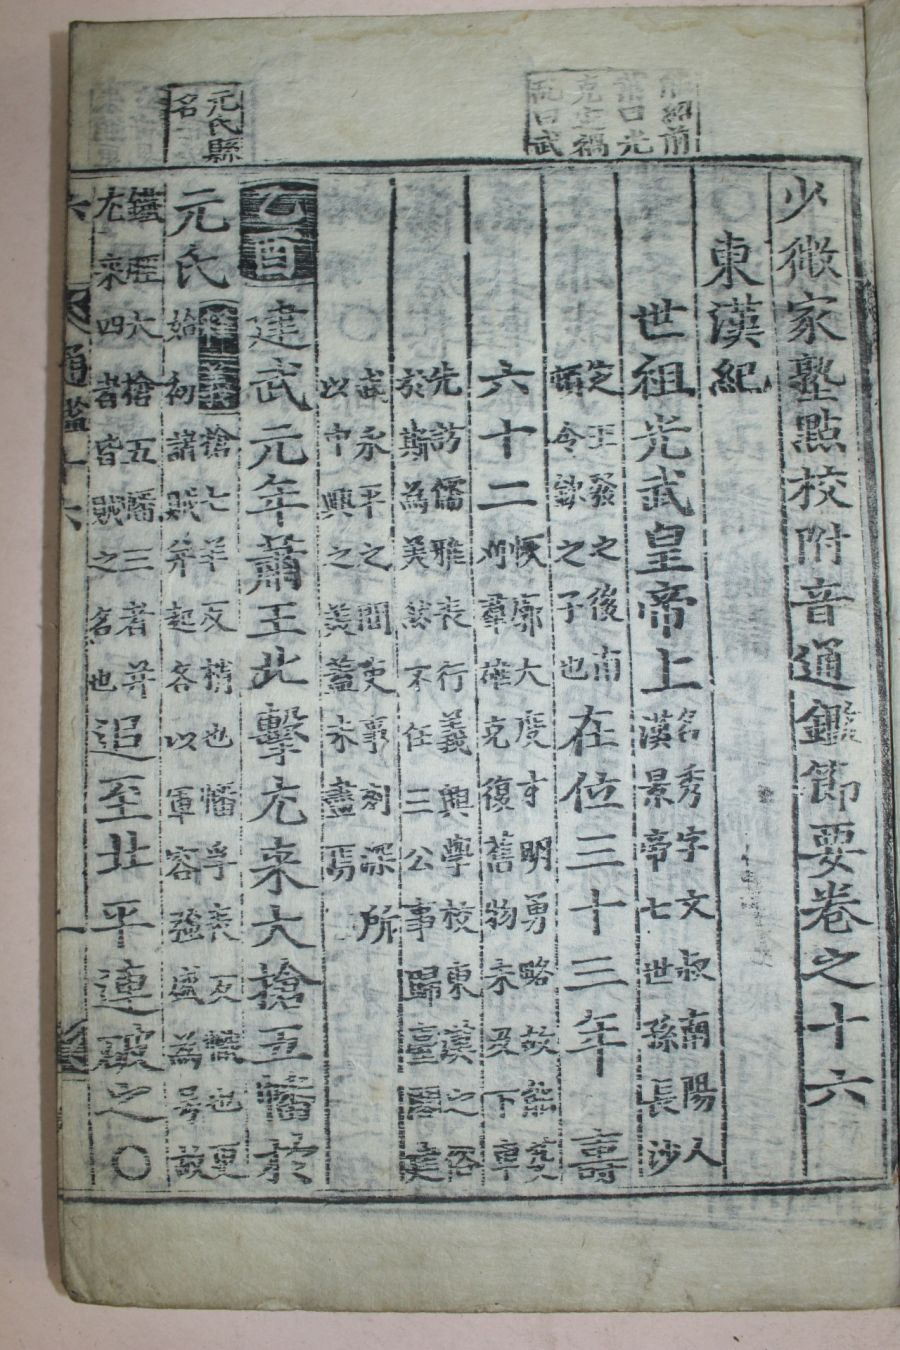 能紹前
業曰光
克定禍
亂曰武
少微家塾點校附音通鑑節要卷之十六
東漢紀
世祖光武皇帝上
名秀字文叔南陽人
漢景帝七世孫長沙
定王發之後南
頓令欽之子也
在位三十三年壽
六十二
恢廓大度才明勇略故能芟
刈羣雄克復舊物未及下車
先訪儒雅表行義興學校東漢之俗
於斯爲美然不任三公事歸臺閣建
武永平之間吏事刻深所
以中興之美蓋未盡焉
乙酉
建武元年蕭王北擊尤来大槍五幡於
元氏縣
名
元氏
槍七羊反槊也幡孚袁反幟也更
始初諸賊并起各以軍容强盛爲号故
鐵脛大槍五幡三者并
尤来四者皆賊之名也
追至北平連破之〇
通鑑十六
一